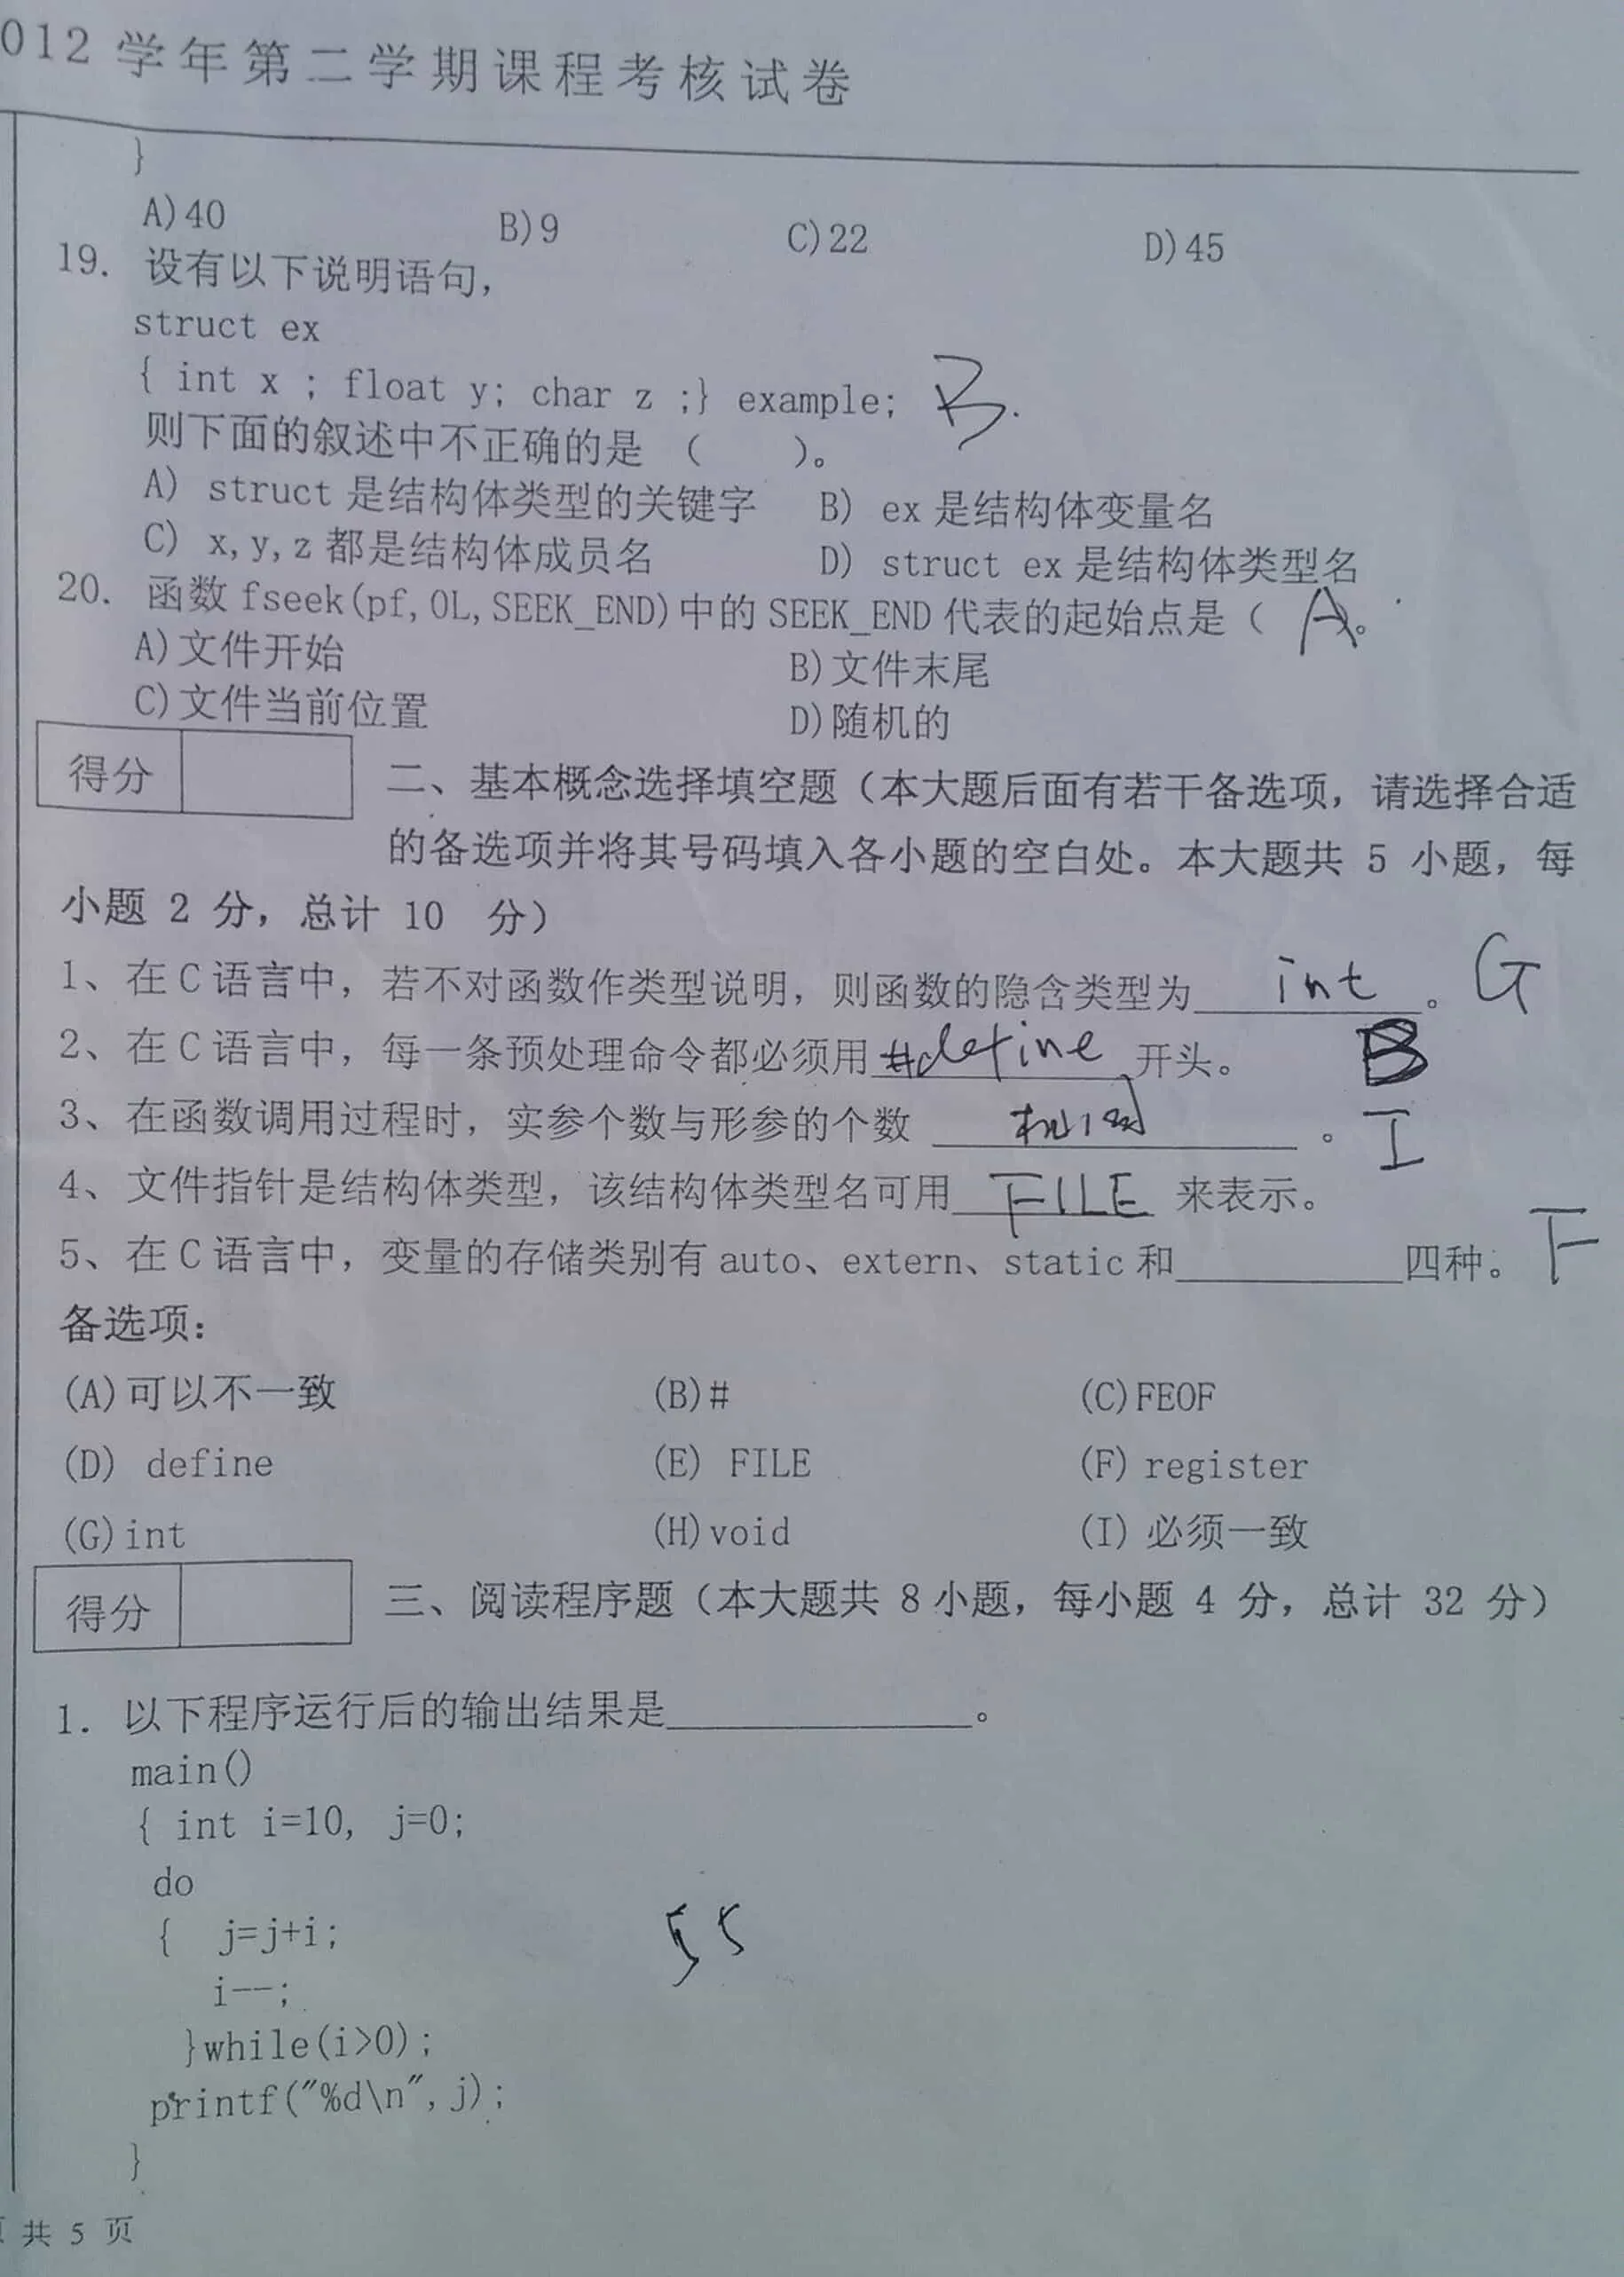 012 学年第二学期课程考核试卷
}
A)40 B)9 C)22 D)45
19. 设有以下说明语句,
struct ex
{ int x ; float y; char z ;} example; B.
则下面的叙述中不正确的是 ( )。
A) struct 是结构体类型的关键字 B) ex 是结构体变量名
C) x,y,z 都是结构体成员名 D) struct ex 是结构体类型名
20. 函数 fseek(pf,0L,SEEK_END)中的 SEEK_END 代表的起始点是( A )。
A)文件开始 B)文件末尾
C)文件当前位置 D)随机的
得分
二、基本概念选择填空题(本大题后面有若干备选项, 请选择合适
的备选项并将其号码填入各小题的空白处。本大题共 5 小题, 每
小题 2 分, 总计 10 分)
1、在 C 语言中, 若不对函数作类型说明, 则函数的隐含类型为 int 。 G
2、在 C 语言中, 每一条预处理命令都必须用 #define 开头。 B
3、在函数调用过程时, 实参个数与形参的个数 相同 。 I
4、文件指针是结构体类型, 该结构体类型名可用 FILE 来表示。
5、在 C 语言中, 变量的存储类别有 auto、extern、static 和________四种。 F
备选项:
(A)可以不一致 (B)# (C)FEOF
(D) define (E) FILE (F) register
(G)int (H)void (I) 必须一致
得分
三、阅读程序题(本大题共 8 小题, 每小题 4 分, 总计 32 分)
1. 以下程序运行后的输出结果是____________。
main()
{ int i=10, j=0;
do
{ j=j+i; 55
i--;
}while(i>0);
printf("%d\n",j);
}
共 5 页